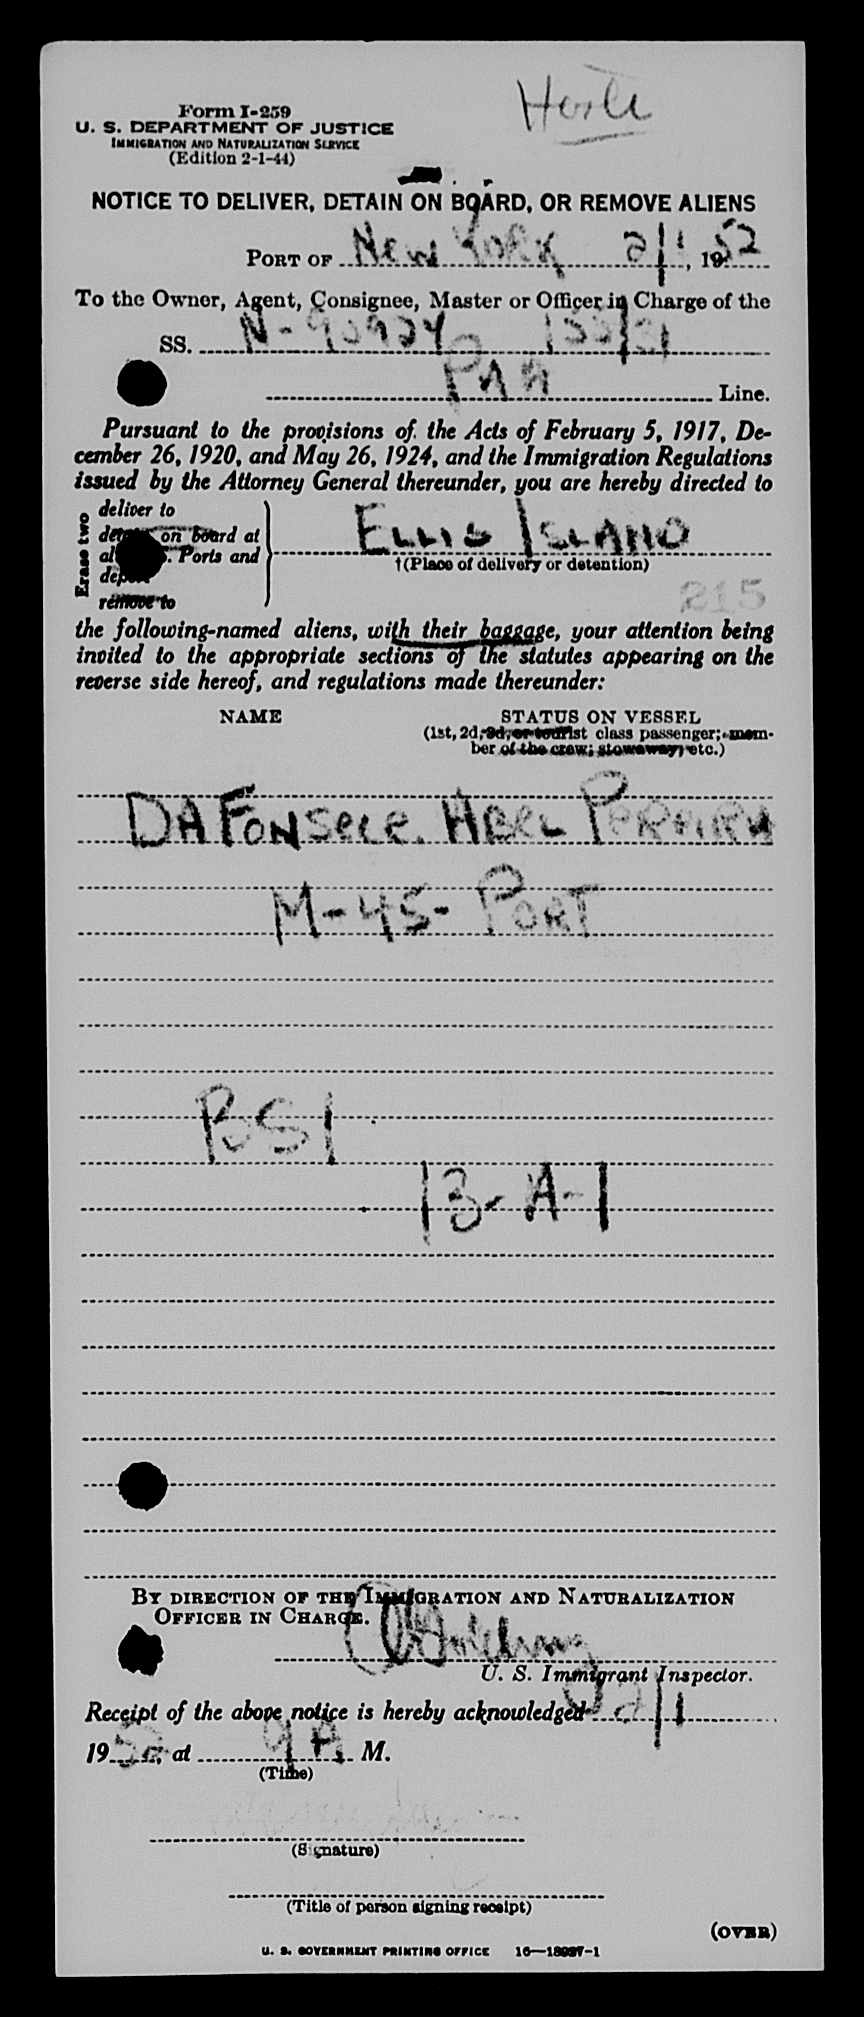 Horta
Form I-259
U. S. DEPARTMENT OF JUSTICE
IMMIGRATION AND NATURALIZATION SERVICE
(Edition 2-1-44)
NOTICE TO DELIVER, DETAIN ON BOARD, OR REMOVE ALIENS
PORT OF New York 2/1, 1952
To the Owner, Agent, Consignee, Master or Officer in Charge of the
SS. N-90924 155/31
PAA Line.
Pursuant to the provisions of the Acts of February 5, 1917, De-
cember 26, 1920, and May 26, 1924, and the Immigration Regulations
issued by the Attorney General thereunder, you are hereby directed to
Erase two
deliver to
detain on board at
al Ports and
deport
remove to
ELLIS ISLAND
†(Place of delivery or detention)
215
the following-named aliens, with their baggage, your attention being
invited to the appropriate sections of the statutes appearing on the
reverse side hereof, and regulations made thereunder:
NAME STATUS ON VESSEL
(1st, 2d, 3d, or tourist class passenger; mem-
ber of the crew; stowaway, etc.)
DA FONSECA. ABEL PERREIRA
M-45-PORT
BSI
13-A-1
BY DIRECTION OF THE IMMIGRATION AND NATURALIZATION
OFFICER IN CHARGE.
U. S. Immigrant Inspector.
Receipt of the above notice is hereby acknowledged 2/1
1952, at 9 A. M.
(Time)
(Signature)
(Title of person signing receipt)
(OVER)
U. S. GOVERNMENT PRINTING OFFICE 16—18927-1